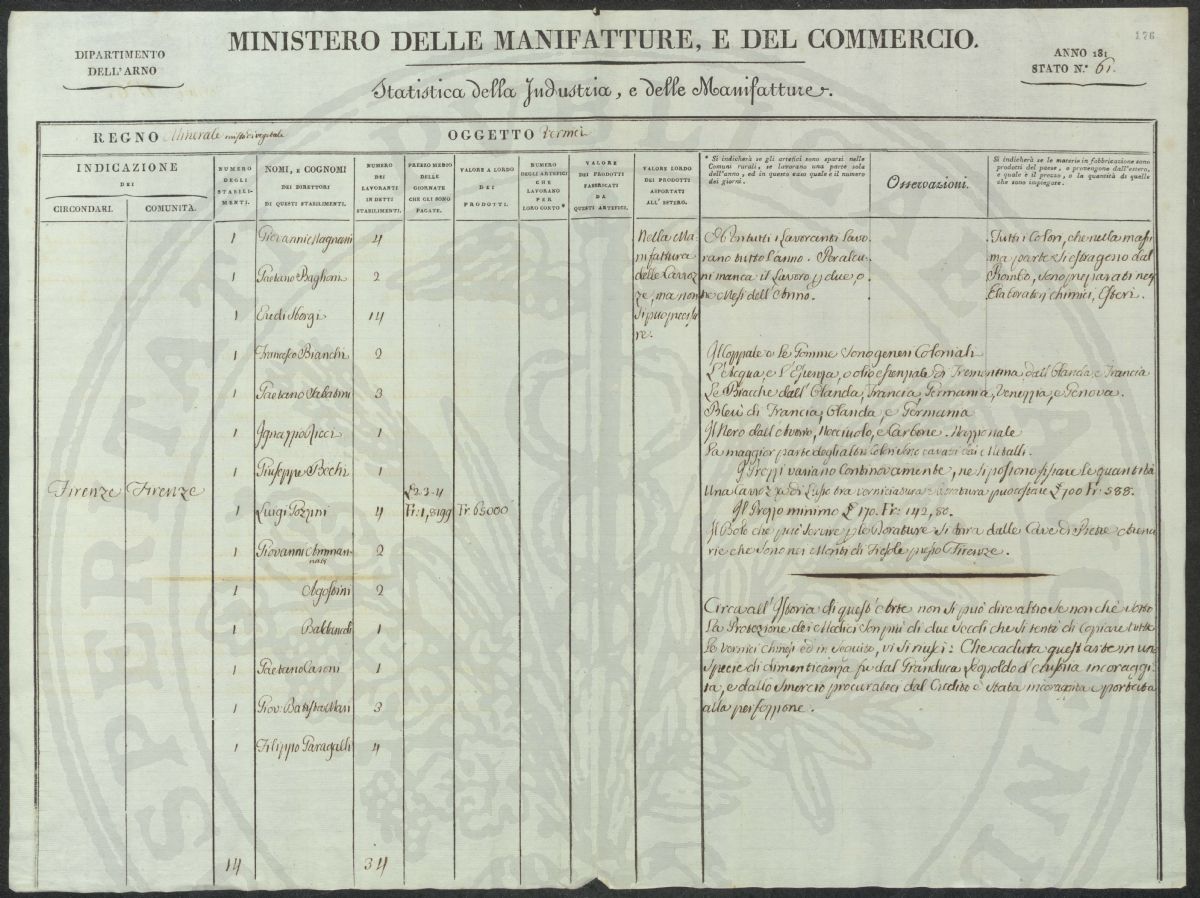 176
MINISTERO DELLE MANIFATTURE, E DEL COMMERCIO.
DIPARTIMENTO
DELL'ARNO
ANNO 181
STATO N.° 61.
Statistica della Industria, e delle Manifatture.
REGNO Minerale misto di vegetale OGGETTO Vernici
INDICAZIONE
DEI
CIRCONDARI. COMUNITÀ.
NUMERO
DEGLI
STABILI-
MENTI.
NOMI, E COGNOMI
DEI DIRETTORI
DI QUESTI STABILIMENTI.
NUMERO
DEI
LAVORANTI
IN DETTI
STABILIMENTI.
PREZZO MEDIO
DELLE
GIORNATE
CHE GLI SONO
PAGATE.
VALORE A LORDO
DEI
PRODOTTI.
NUMERO
DEGLI ARTEFICI
CHE
LAVORANO
PER
LORO CONTO *
VALORE
DEI PRODOTTI
FABBRICATI
DA
QUESTI ARTEFICI.
VALORE LORDO
DEI PRODOTTI
ASPORTATI
ALL'ESTERO.
* Si indicherà se gli artefici sono sparsi nelle
Comuni rurali, se lavorano una parte sola
dell'anno, ed in questo caso quale è il numero
dei giorni.
Osservazioni.
Si indicherà se le materie in fabbricazione sono
prodotti del paese, o provengono dall'estero,
e quale è il prezzo, o la quantità di quelle
che sono impiegate.
1 Giovanni Magnani 4
1 Gaetano Baglioni 2
1 Eredi Borgi 14
1 Francesco Bianchi 2
1 Gaetano 3
1 Ignazzio Ricci 1
1 Giuseppe Bechi 1
Firenze Firenze
1 Luigi Pozzini 4 £ 2.3.4 Fr: 1,8199 Fr 65000
1 Giovanni Amman-
nati 2
1 Agostini 2
1 1
1 Gaetano Caroni 1
1 Giov: Batista Mari 3
1 Filippo Paragalli 4
14 34
Nella Ma-
nifattura
delle Carroz-
ze, ma non
si può precisa-
re.
Non tutti i Lavoranti lavo-
rano tutto l'anno. Per alcu-
ni manca il Lavoro p due, o
tre Mesi dell'Anno.
Tutti i Colori, che nella massi-
ma parte si estraggono dal
Piombo, sono preparati negl
Elaboratorj chimici, Esteri.
Il Coppale o le Gomme sono generi Coloniali
L'Acqua, e l'Essenza, o olio essenziale di Trementina dall'Olanda, e Francia
Le Biacche dall'Olanda, Francia, Germania, Venezzia, e Genova.
Bleu di Francia, Olanda, e Germania
Il Nero dall'Avorio, Nocciuolo, e Carbone. Nazzionale
La maggior parte degli altri Colori sono cavati dai Metalli.
I Prezzi variano Continovamente, ne si possono fissare le quantità
Una Carrozza di Lusso tra verniciatura e doratura può costare £ 700 Fr: 588.
Il Prezzo minimo £ 170. Fr: 142,80.
Il Bolo che può servire p le Dorature si tira dalle Cave di Pietre Arena-
rie che sono nei Monti di Fiesole presso Firenze.
Circa all'Istoria di quest'Arte non si può dire altro se non chè sotto
La Protezione dei Medici son più di due Secoli che si tentò di Copiare tutte
le Vernici chinesi ed in seguito, vi si riuscì: Che caduta quest'arte in un
specie di dimenticanza fu dal Granduca Leopoldo d'Austria incoraggi-
ta, e dallo smercio procuratoci dal Credito è stata incoraggita e portata
alla perfezzione.